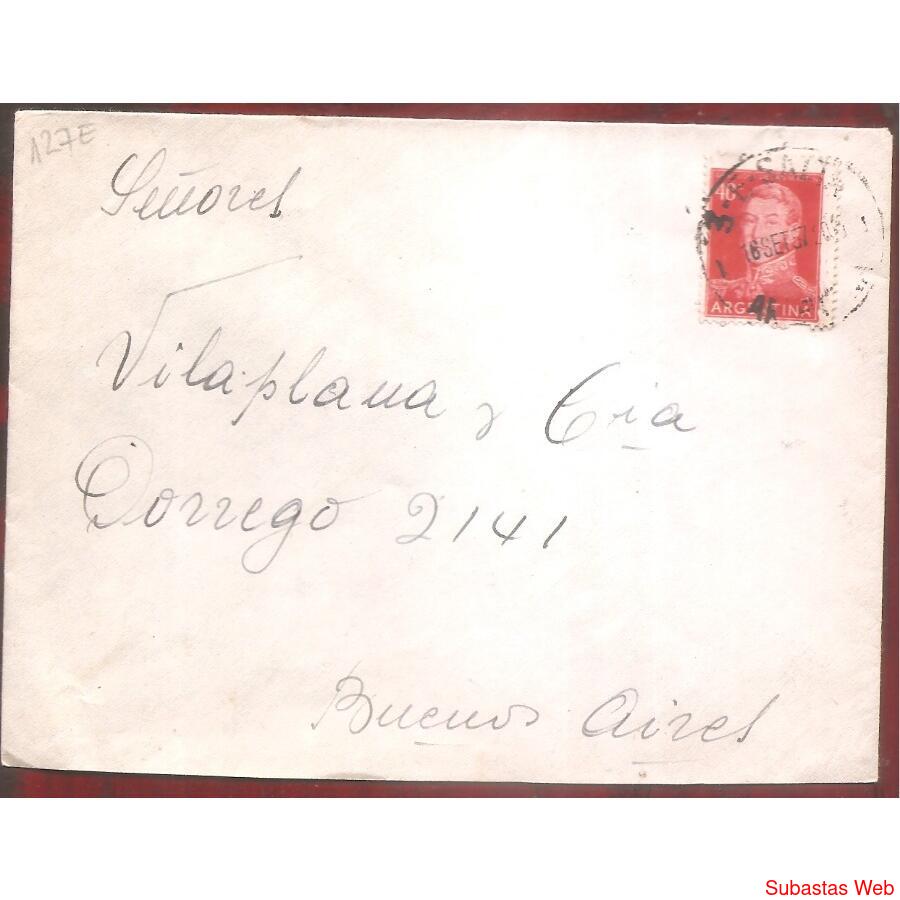 127E
Señores
40
16 SET 57 20
ARGENTINA
Vilaplana y Cia
Dorrego 2141
Buenos Aires
Subastas Web